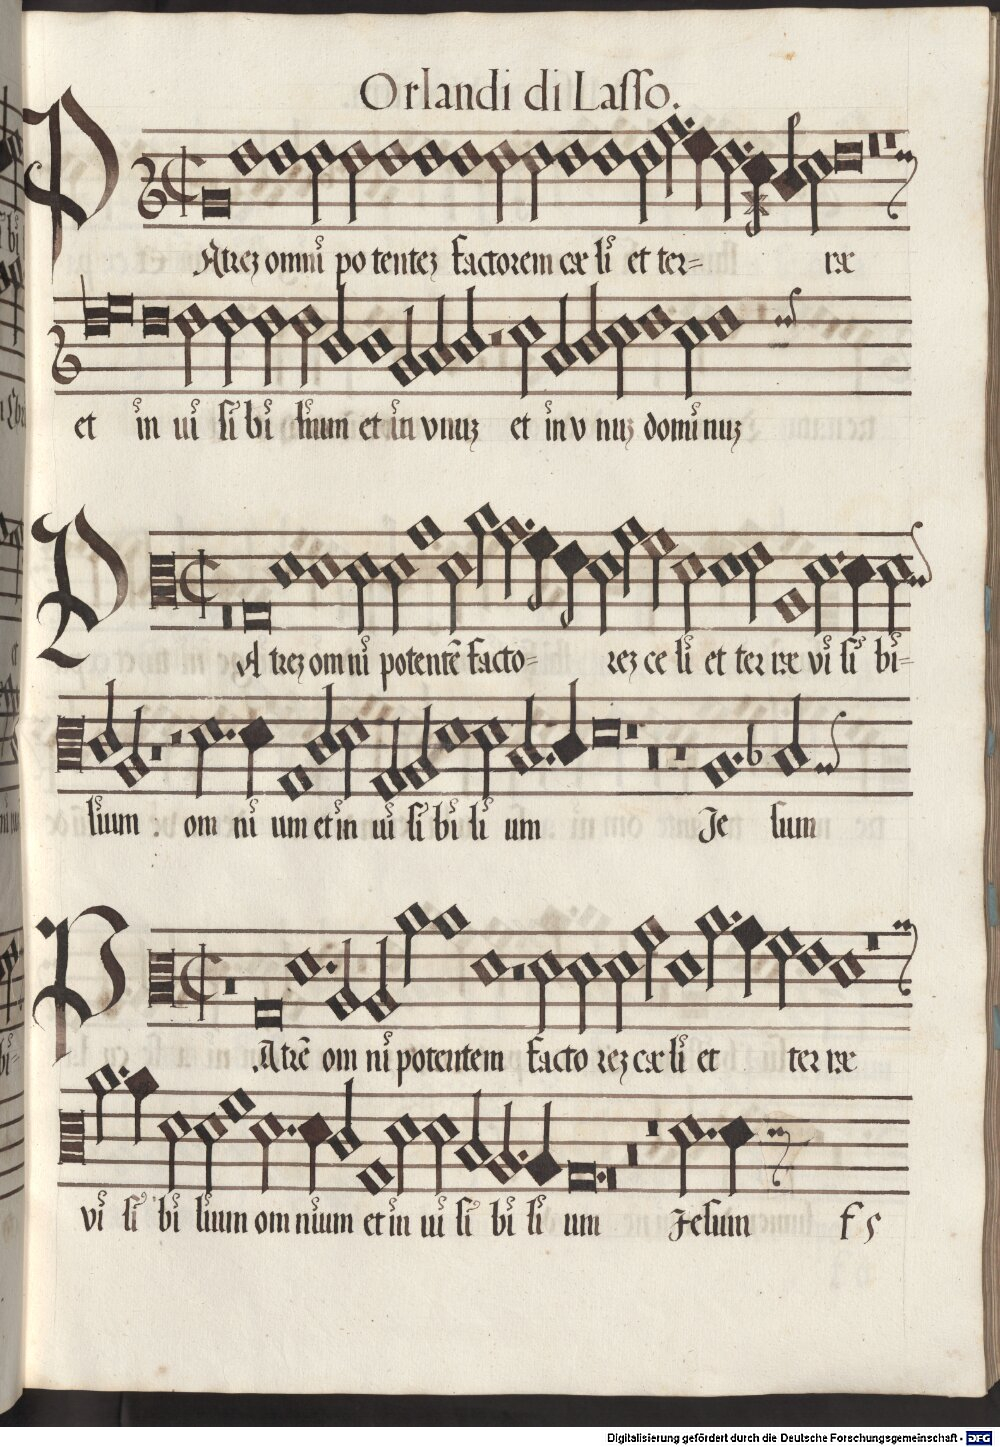 Orlandi di Lasso.
PAtrez omni potentez factorem cæ li et ter= ræ
et in ui si bi lium et in vnuz et in v nuz domi nuz
PA trez omni potentē facto= rez ce li et ter ræ vi si bi=
lium om ni um et in ui si bi li um Je sum
PAtrē om ni potentem facto rez cæ li et ter ræ
vi si bi lium om nium et in ui si bi li um Jesum f 5
Digitalisierung gefördert durch die Deutsche Forschungsgemeinschaft - DFG